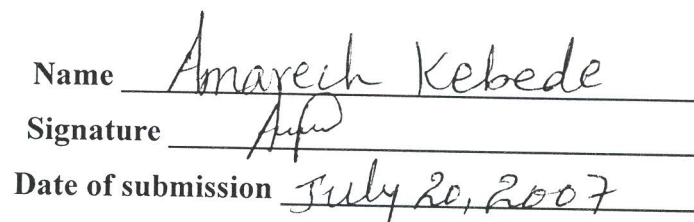 Name Amarech Kebede
Signature
Date of submission July 20, 2007